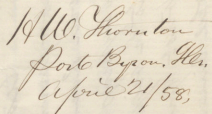 H W. Thornton
Port Byron, Ills.
April 21/58,